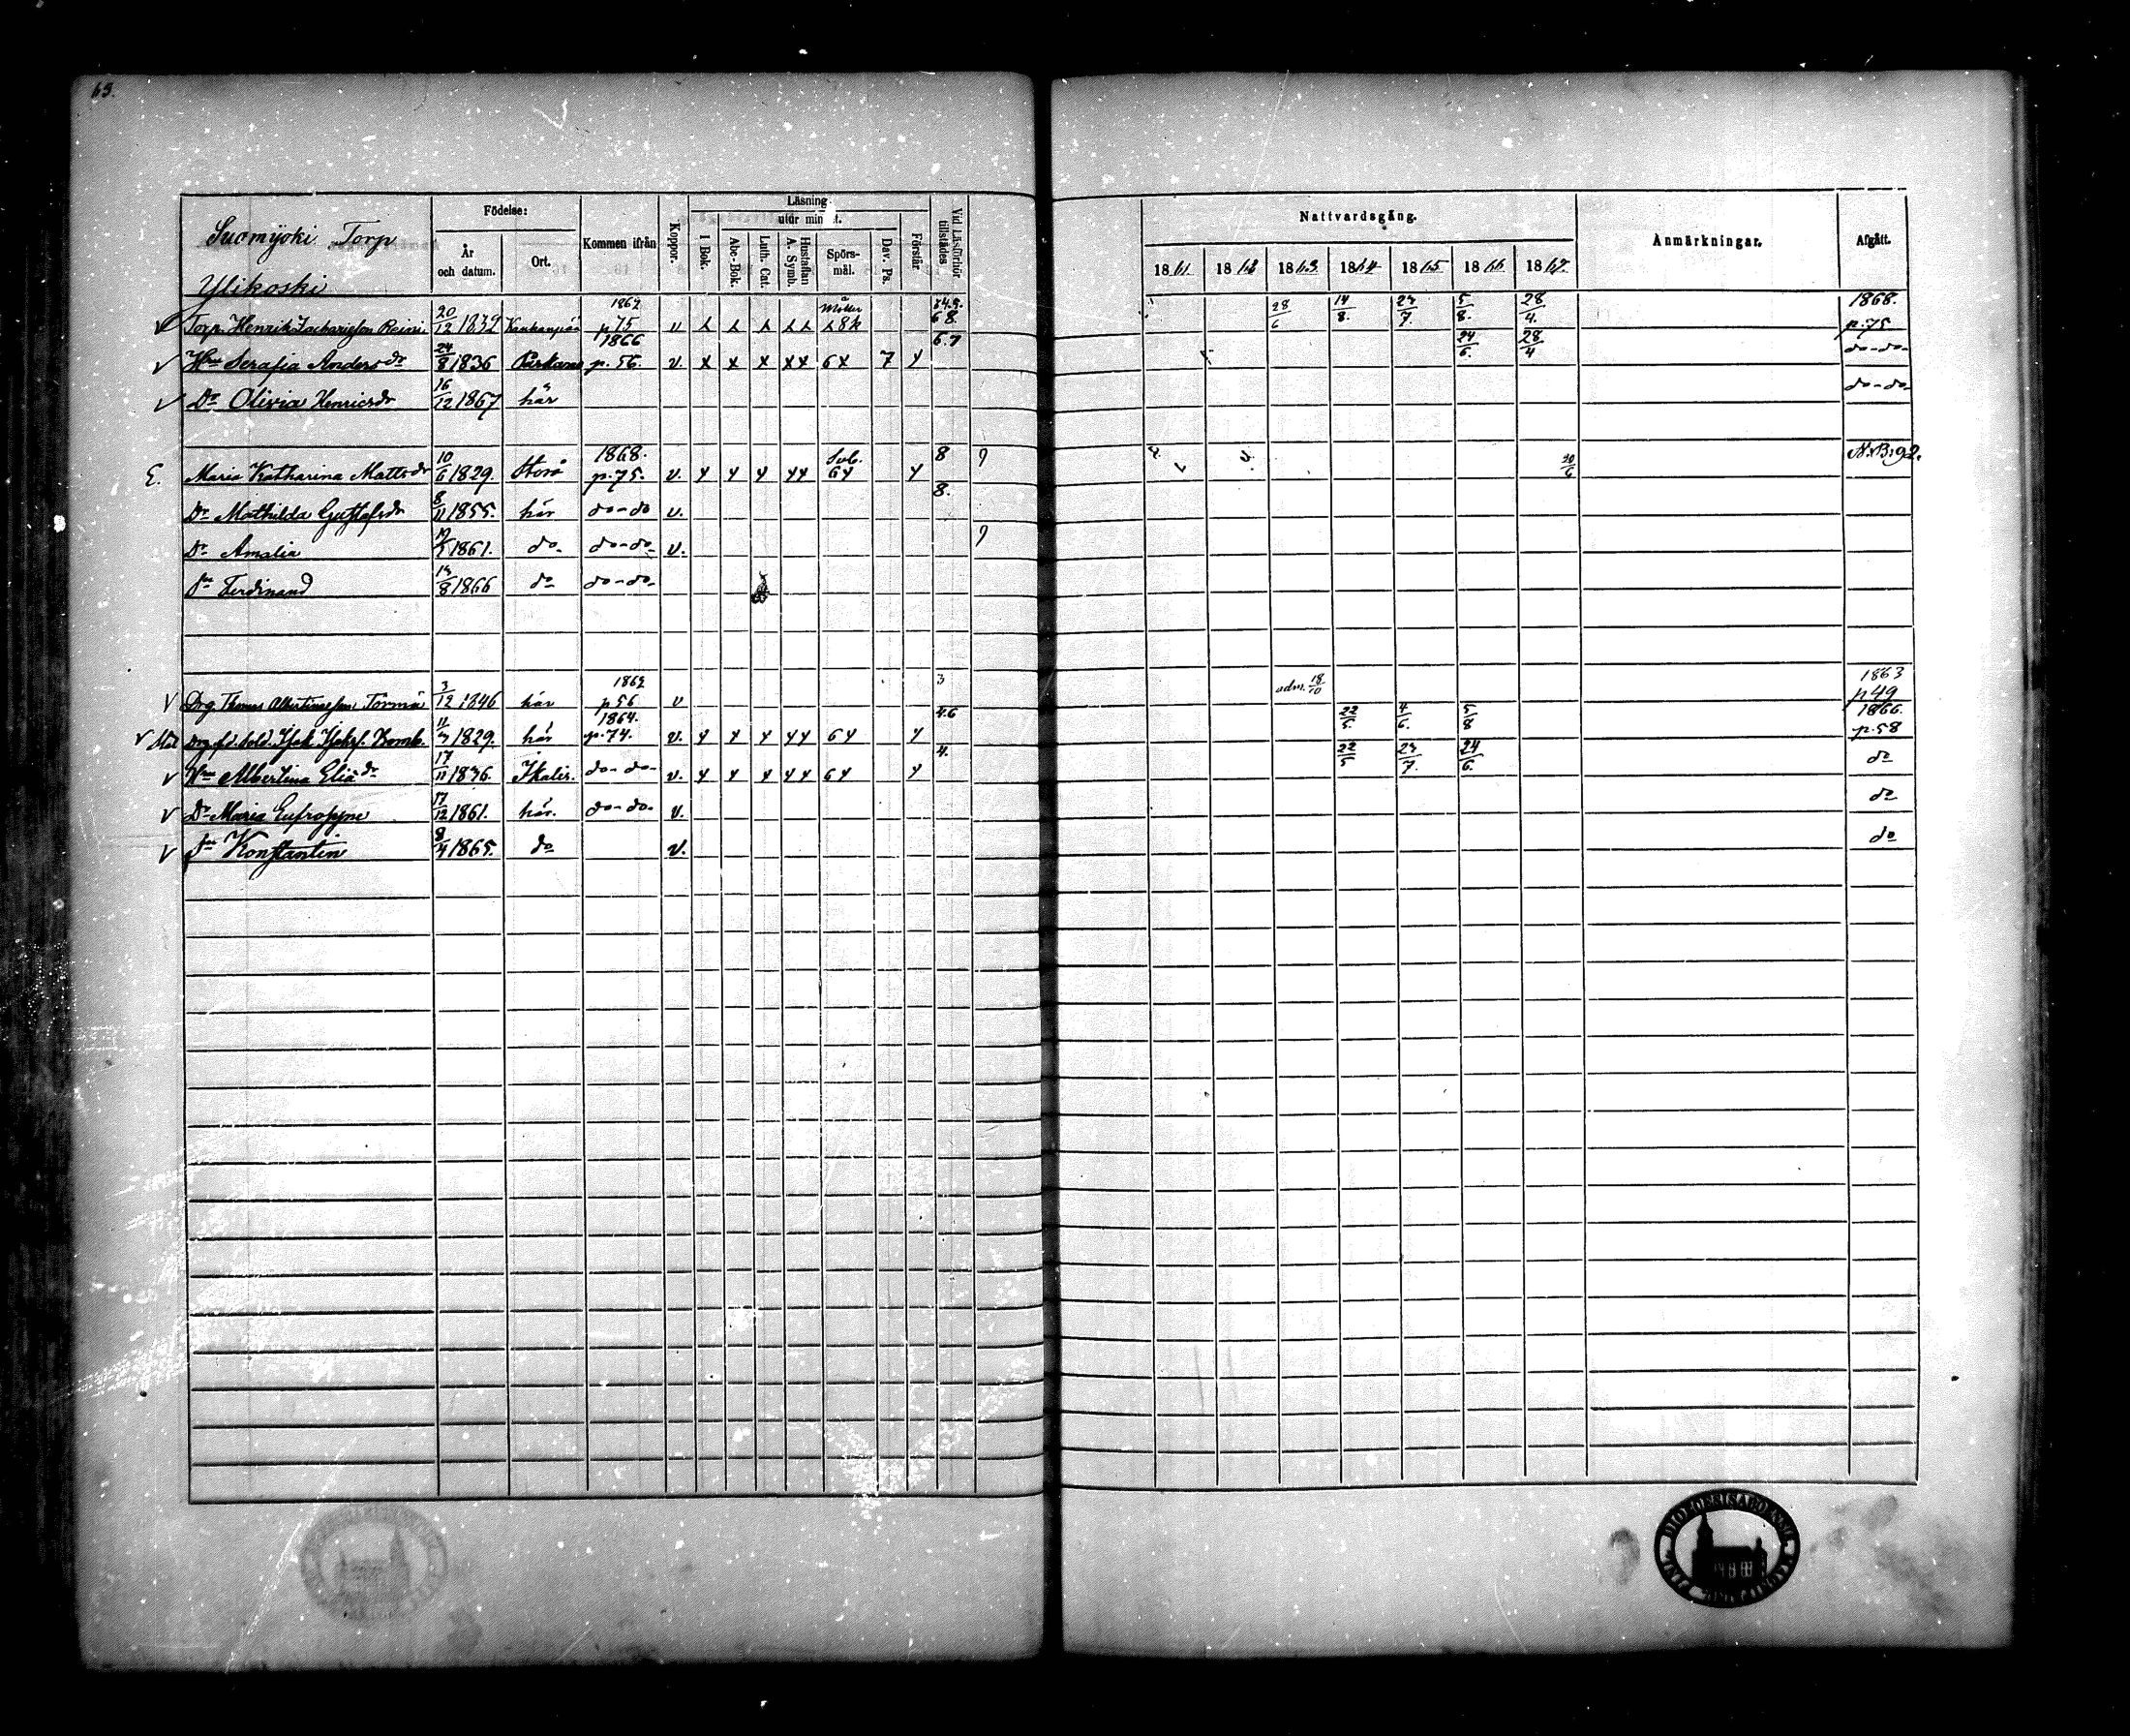 63.
Födelse:
Läsning
utur minnet.
Suomijoki Torp
Ylikoski
År och datum.
Ort.
Kommen ifrån
Koppor.
I Bok.
Abc-Bok.
Luth. Cat.
Hustaflan A. Symb.
Spörs-mål.
Dav. Ps.
Förstår
Vid Läsförhör tillstädes
Nattvardsgång.
1861 1862 1863 1864 1865 1866 1867
Anmärkningar.
Afgått.
1862 Måtte 1868.
Torp. Henrik Zachariesson Reini 20/12 1832 Kankanpää p 75 v 68 28/6 14/8. 23/7. 5/8. 28/4. p. 75
1866 6.7
Hu Serafia Andersdr 24/8 1836 Parkano p. 56. v. x x x x x 6 x 7 24/6. 28/4 do-do-
Dr Olivia Henricsdr 16/12 1867 här do-do-
1868. Svb. 8
E. Maria Katharina Mattsdr 10/6 1829. Storå p. 75. v. 30/6 N.B. 92.
Dr Mathilda Gustafsdr 8/11 1855. här do-do v. 8.
Dr Amalia 1861. do- do-do- v.
Sn Ferdinand 13/8 1866 do do-do-
1862 3 1863
Drg. Thomas Albertinesson Törmä 3/12 1846 här p 56 v adm. 18/10 p 49
1864. 4.6 1866.
Drg. fd. sold. Isak Isaksf. Komb. 1829. här p. 74. v. 22/5. 4/6. 5/8 p. 58
Hu Albertina Eliædr 17/11 1836. Ikalis. do-do- v. 4. 22/5 23/7. 24/6. do
Dr Maria Eufrosyne 17/12 1861. här. do-do- v. do
Sn Konstantin 8/4 1865. do v. do